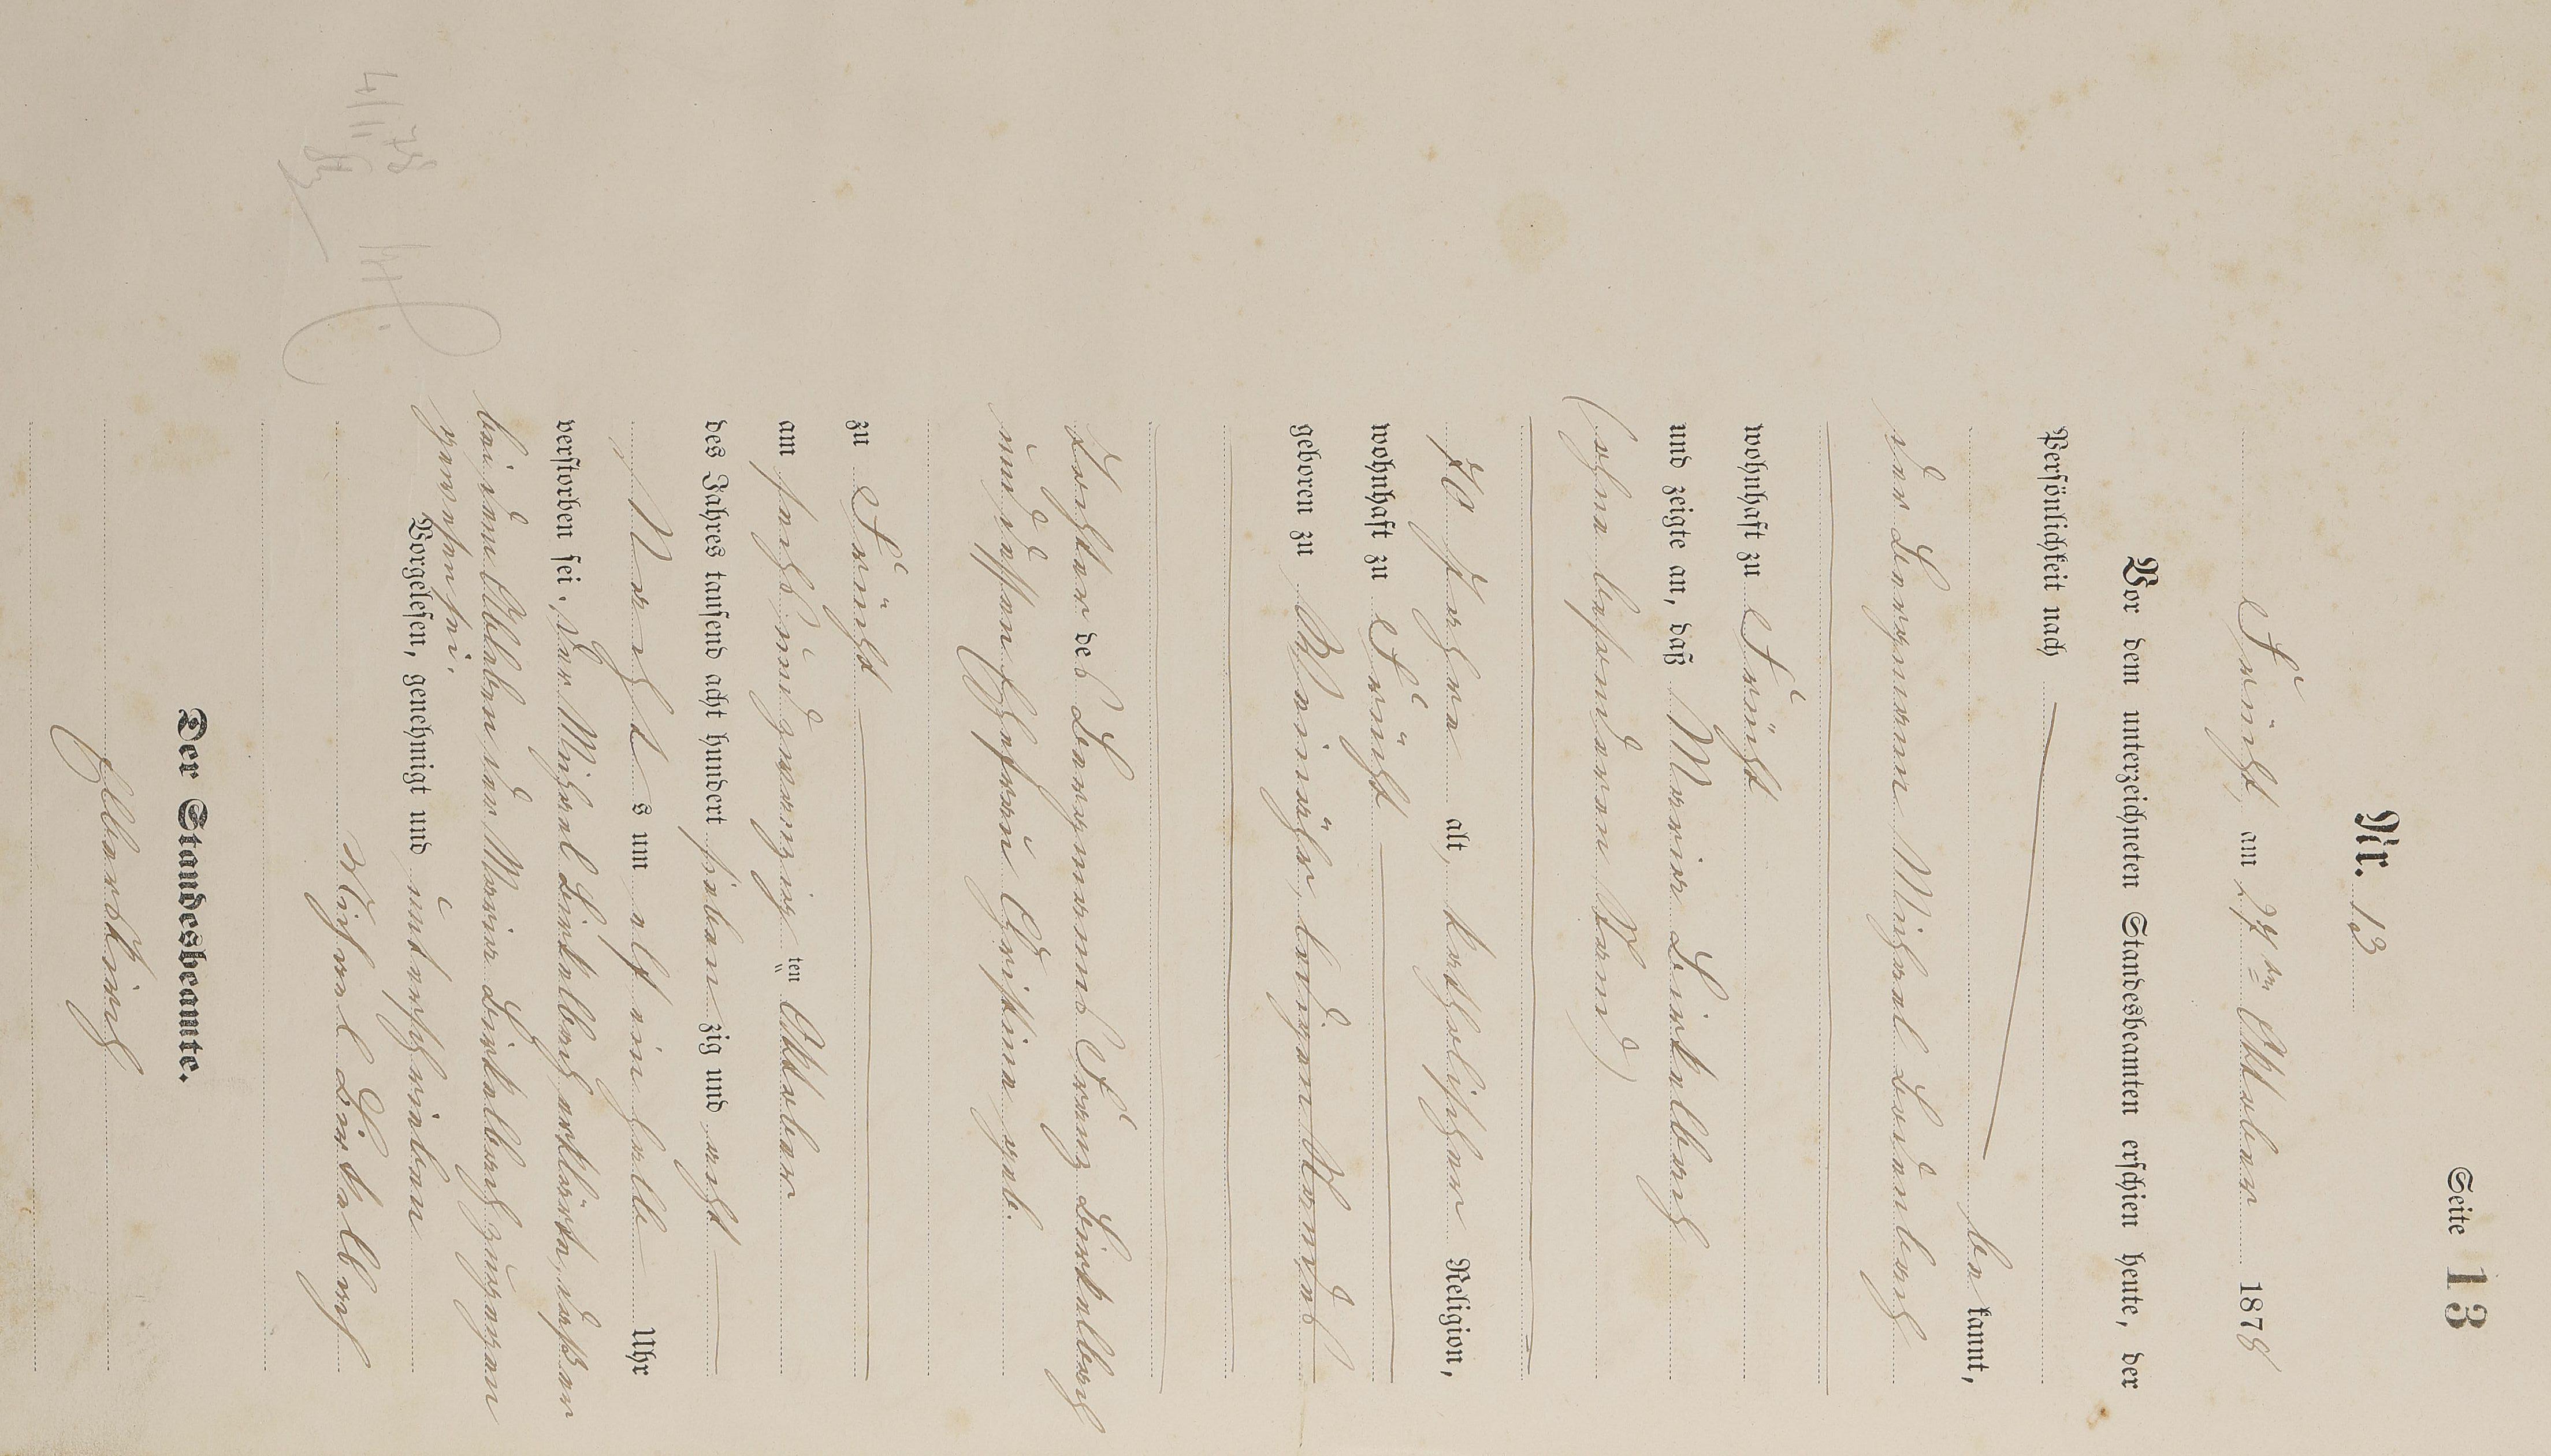 Seite 13
Nr. 13
Frücht, am 27ten Oktober 1878
Vor dem unterzeichneten Standesbeamten erschien heute, der
Persönlichkeit nach
be kannt,
der Bergmann Michael
wohnhaft zu Frücht
und zeigte an, daß Maria
(ohne besonderen Stand)
70 Jahre alt, katholischer Religion,
wohnhaft zu Frücht
geboren zu ledigen Standes
Tochter des Bergmanns Franz
und dessen Ehefrau Christine geb.
zu Frücht
am sechsundzwanzig ten Oktober
des Jahres tausend acht hundert sieben zig und acht
Nachts um elf ein halb Uhr
verstorben sei. Der Michael erklärte, daß er
bei dem Ableben der Maria zugegen
gewesen sei.
Vorgelesen, genehmigt und unterschrieben
Michael
Der Standesbeamte.
4/11 78